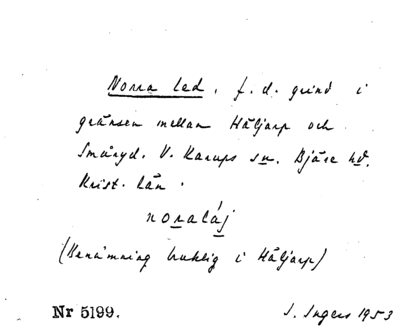 Norra led. f. d. grind i
gränsen mellan Häljarp och
Småryd. V. Karups sn. Bjäre hd.
Krist. län.
noraláj
(Benämning bruklig i Häljarp)
Nr 5199.
I. Ingers 1953